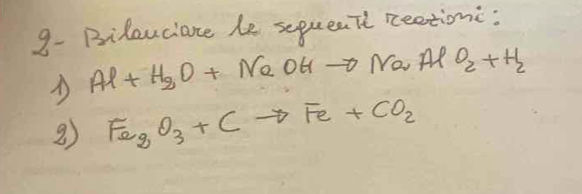 2- Bilanciare le seguenti reazioni:
1) Al + H₂O + NaOH → NaAlO₂ + H₂
2) Fe₂O₃ + C → Fe + CO₂